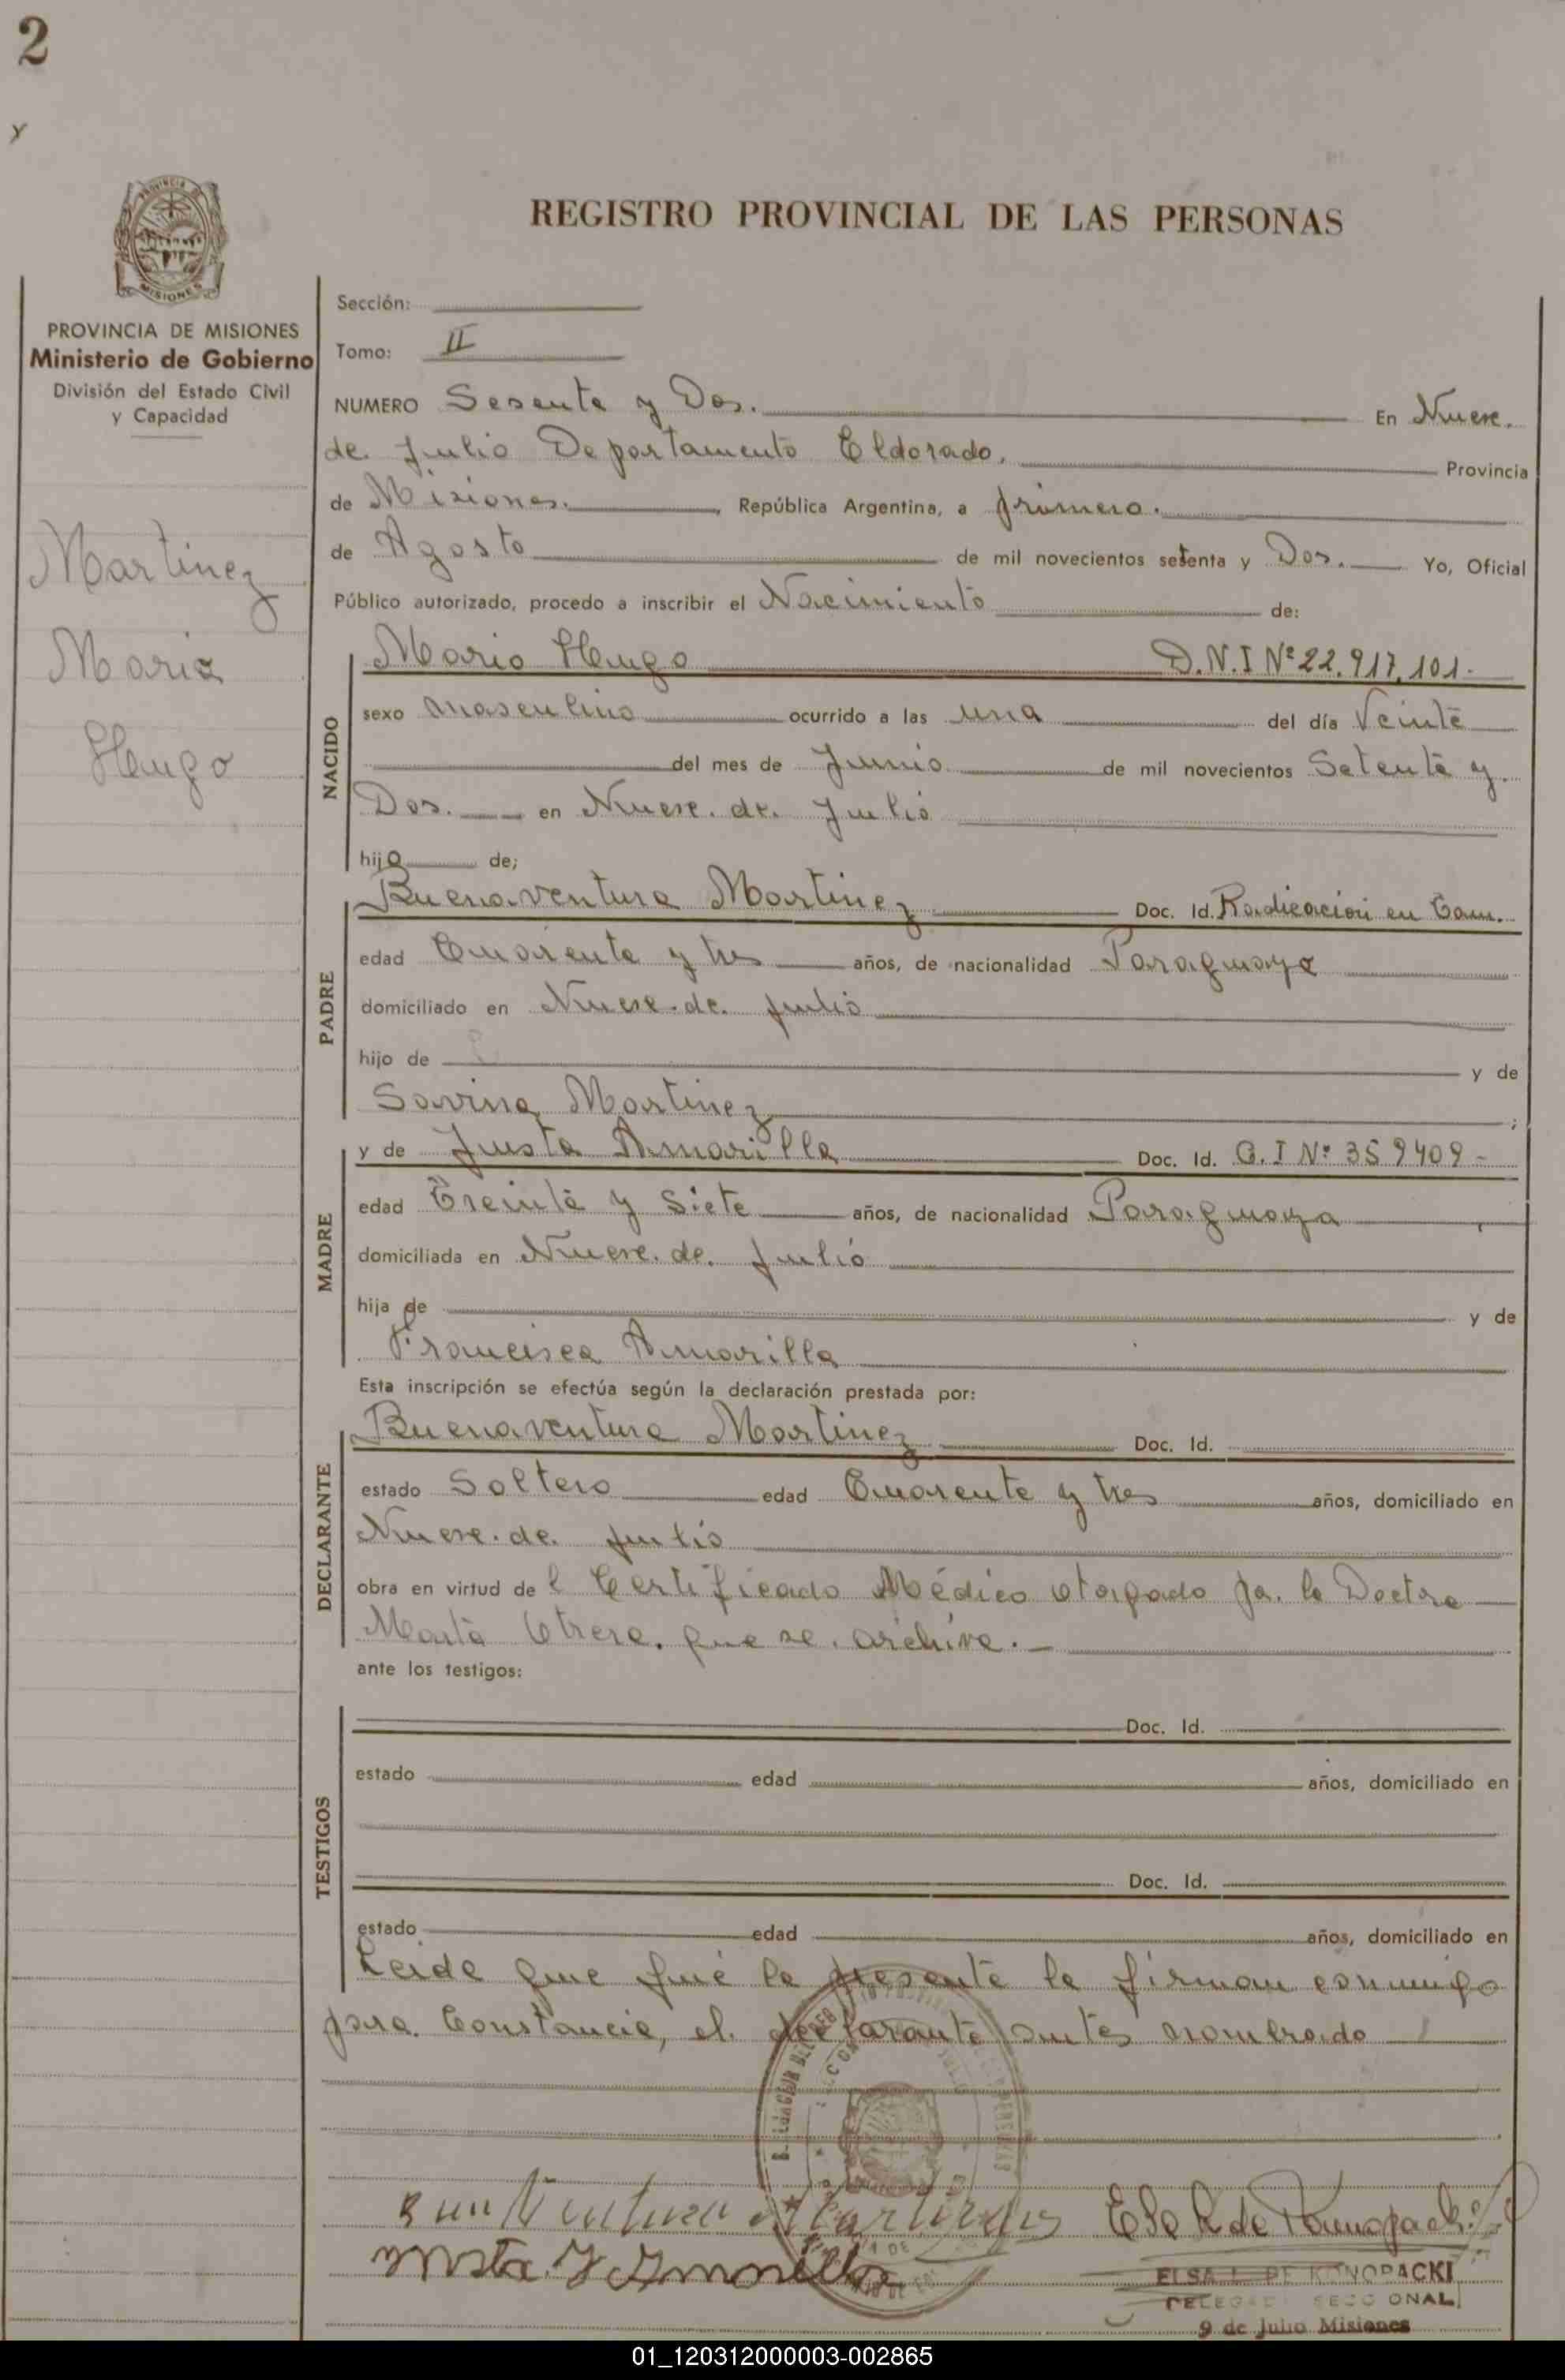 2
REGISTRO PROVINCIAL DE LAS PERSONAS
MISIONES
PROVINCIA DE MISIONES
Ministerio de Gobierno
División del Estado Civil
y Capacidad
Martinez
Mario
Hugo
Sección:
Tomo: II
NUMERO Sesenta y Dos. En Nueve.
de. Julio Departamento Eldorado. Provincia
de Misiones. República Argentina, a primero.
de Agosto de mil novecientos setenta y Dos. Yo, Oficial
Público autorizado, procedo a inscribir el Nacimiento de:
NACIDO
Mario Hugo D.N.I Nº 22.917.101.-
sexo masculino ocurrido a las una del día Veinte
del mes de Junio de mil novecientos Setenta y.
Dos. en Nueve. de. Julio
hijo de;
PADRE
Buenaventura Martinez Doc. Id. Radicacion en Tam.
edad Cuarenta y tres años, de nacionalidad Paraguaya
domiciliado en Nueve. de. Julio
hijo de y de
Savina Martinez ;
MADRE
y de Justa Amarilla Doc. Id. C. I Nº 359409-
edad Treinta y Siete años, de nacionalidad Paraguaya
domiciliada en Nueve. de. Julio
hija de y de
Francisca Amarilla
Esta inscripción se efectúa según la declaración prestada por:
DECLARANTE
Buenaventura Martinez Doc. Id.
estado Soltero edad Cuarenta y tres años, domiciliado en
Nueve. de. Julio
obra en virtud de l Certificado Médico otorgado por la Doctora
Marta que se. archiva.-
ante los testigos:
TESTIGOS
Doc. Id.
estado edad años, domiciliado en
Doc. Id.
estado edad años, domiciliado en
Leida que fué la presente la firman conmigo
para Constancia, el. declarante antes nombrado
ELSA L. DE KONOPACKI
DELEGADA SECCIONAL
9 de Julio Misiones
01_120312000003-002865